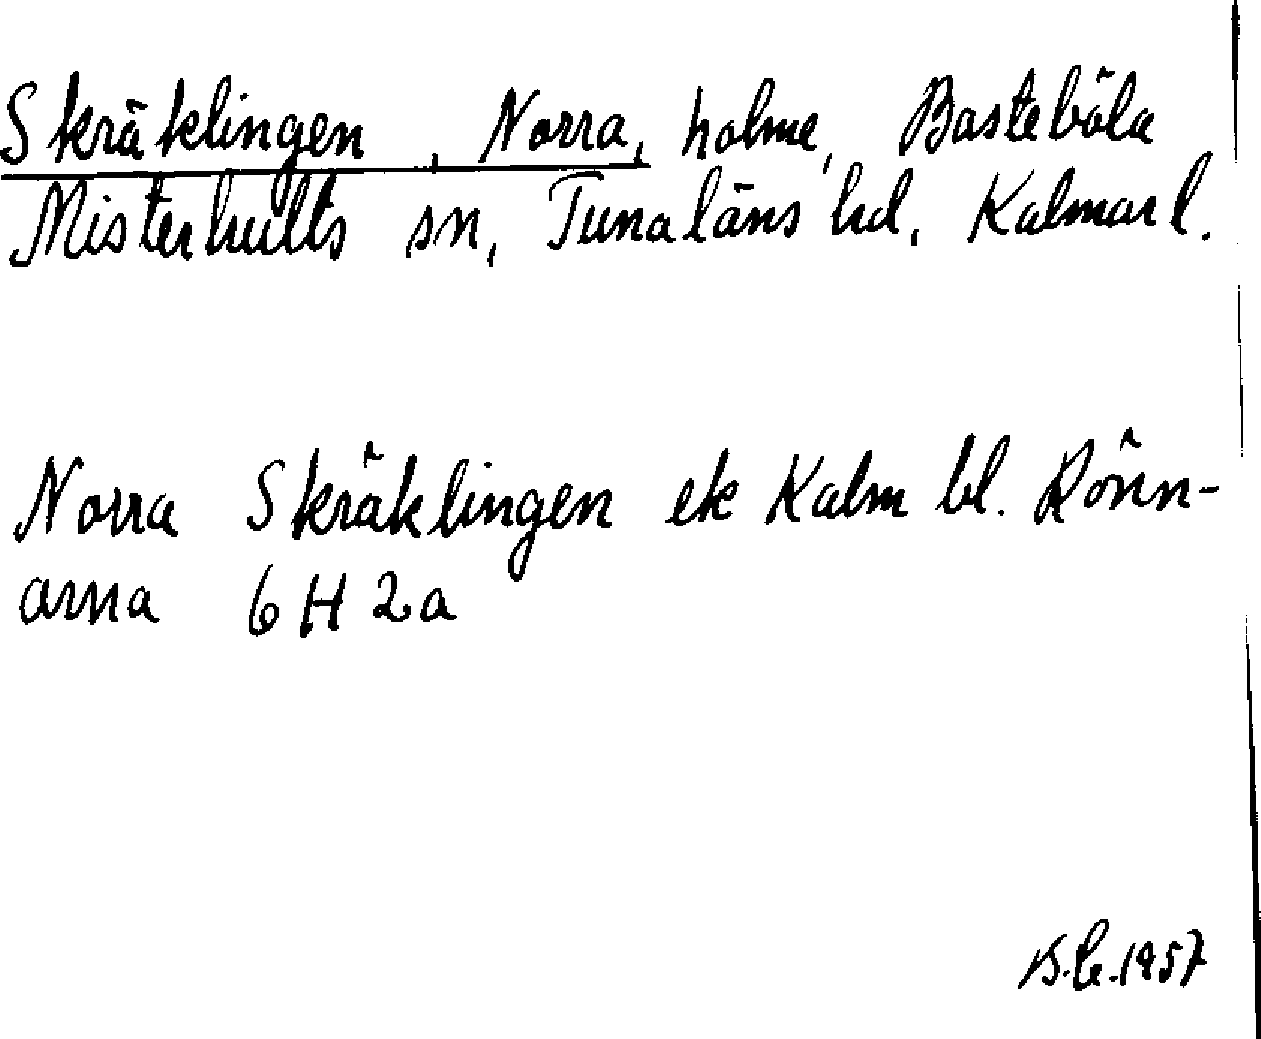 Skräklingen, Norra, holme, Basteböla
Misterhults sn, Tunaläns hd, Kalmar l.
Norra Skräklingen ek Kalm bl. Rönn-
arna 6H2a
B.C. 1957